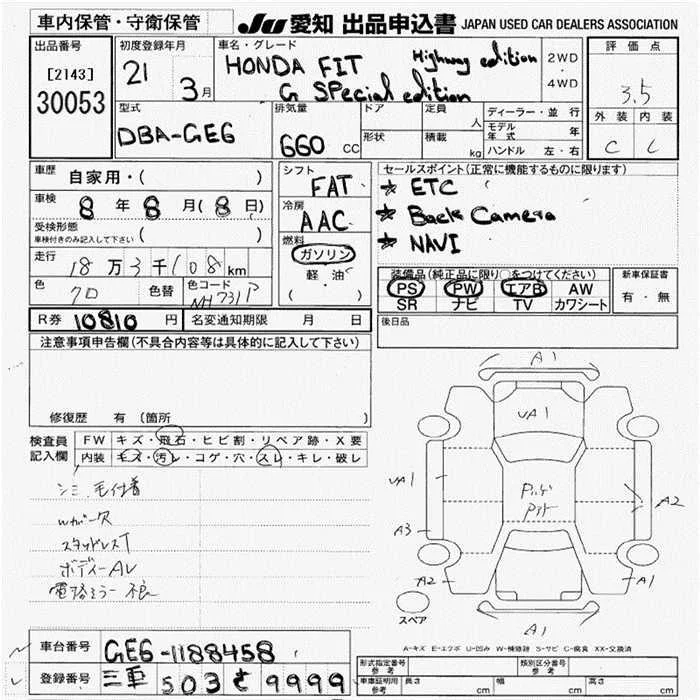 車内保管・守衛保管
JU 愛知 出品申込書 JAPAN USED CAR DEALERS ASSOCIATION
出品番号
[2143]
30053
初度登録年月
21 3月
車名・グレード
HONDA FIT Highway edition
G SPecial edition
2WD
・
4WD
評価点
3.5
外装 内装
C C
型式
DBA-GE6
排気量
660 cc
ドア
形状
定員 人
積載 kg
ディーラー・並行
モデル年式 年
ハンドル 左・右
車歴 自家用・( )
車検 8年8月(8日)
受検形態 ( )
車検付きのみ記入して下さい
走行 18万3千108km
色 クロ 色替 色コード NH731P
シフト
FAT
冷房
AAC
燃料
ガソリン
軽・油
( )
セールスポイント(正常に機能するものに限ります)
★ ETC
★ Back Camera
★ NAVI
装備品(純正品に限り○をつけてください)
PS PW エアB AW
SR ナビ TV カワシート
新車保証書
有・無
R券 10810円 名変通知期限 月 日
後日品
注意事項申告欄(不具合内容等は具体的に記入して下さい)
修復歴 有(箇所 )
検査員記入欄
FW キズ・飛石・ヒビ割・リペア跡・X要
内装 キズ・汚レ・コゲ・穴・スレ・キレ・破レ
シミ 毛付着
Wカバー欠
スタッドレスT
ボディーAU
電格ミラー不良
A1
UA1
UA1
A2
A3
A2
A1
A1
スペア
A-キズ E-エクボ U-凹み W-補修跡 S-サビ C-腐食 XX-交換済
車台番号 GE6-1188458
登録番号 三重 503 さ 9999
形式指定番号 参考
類別区分番号 参考
車庫証明用 参考 長さ cm 幅 cm 高さ cm